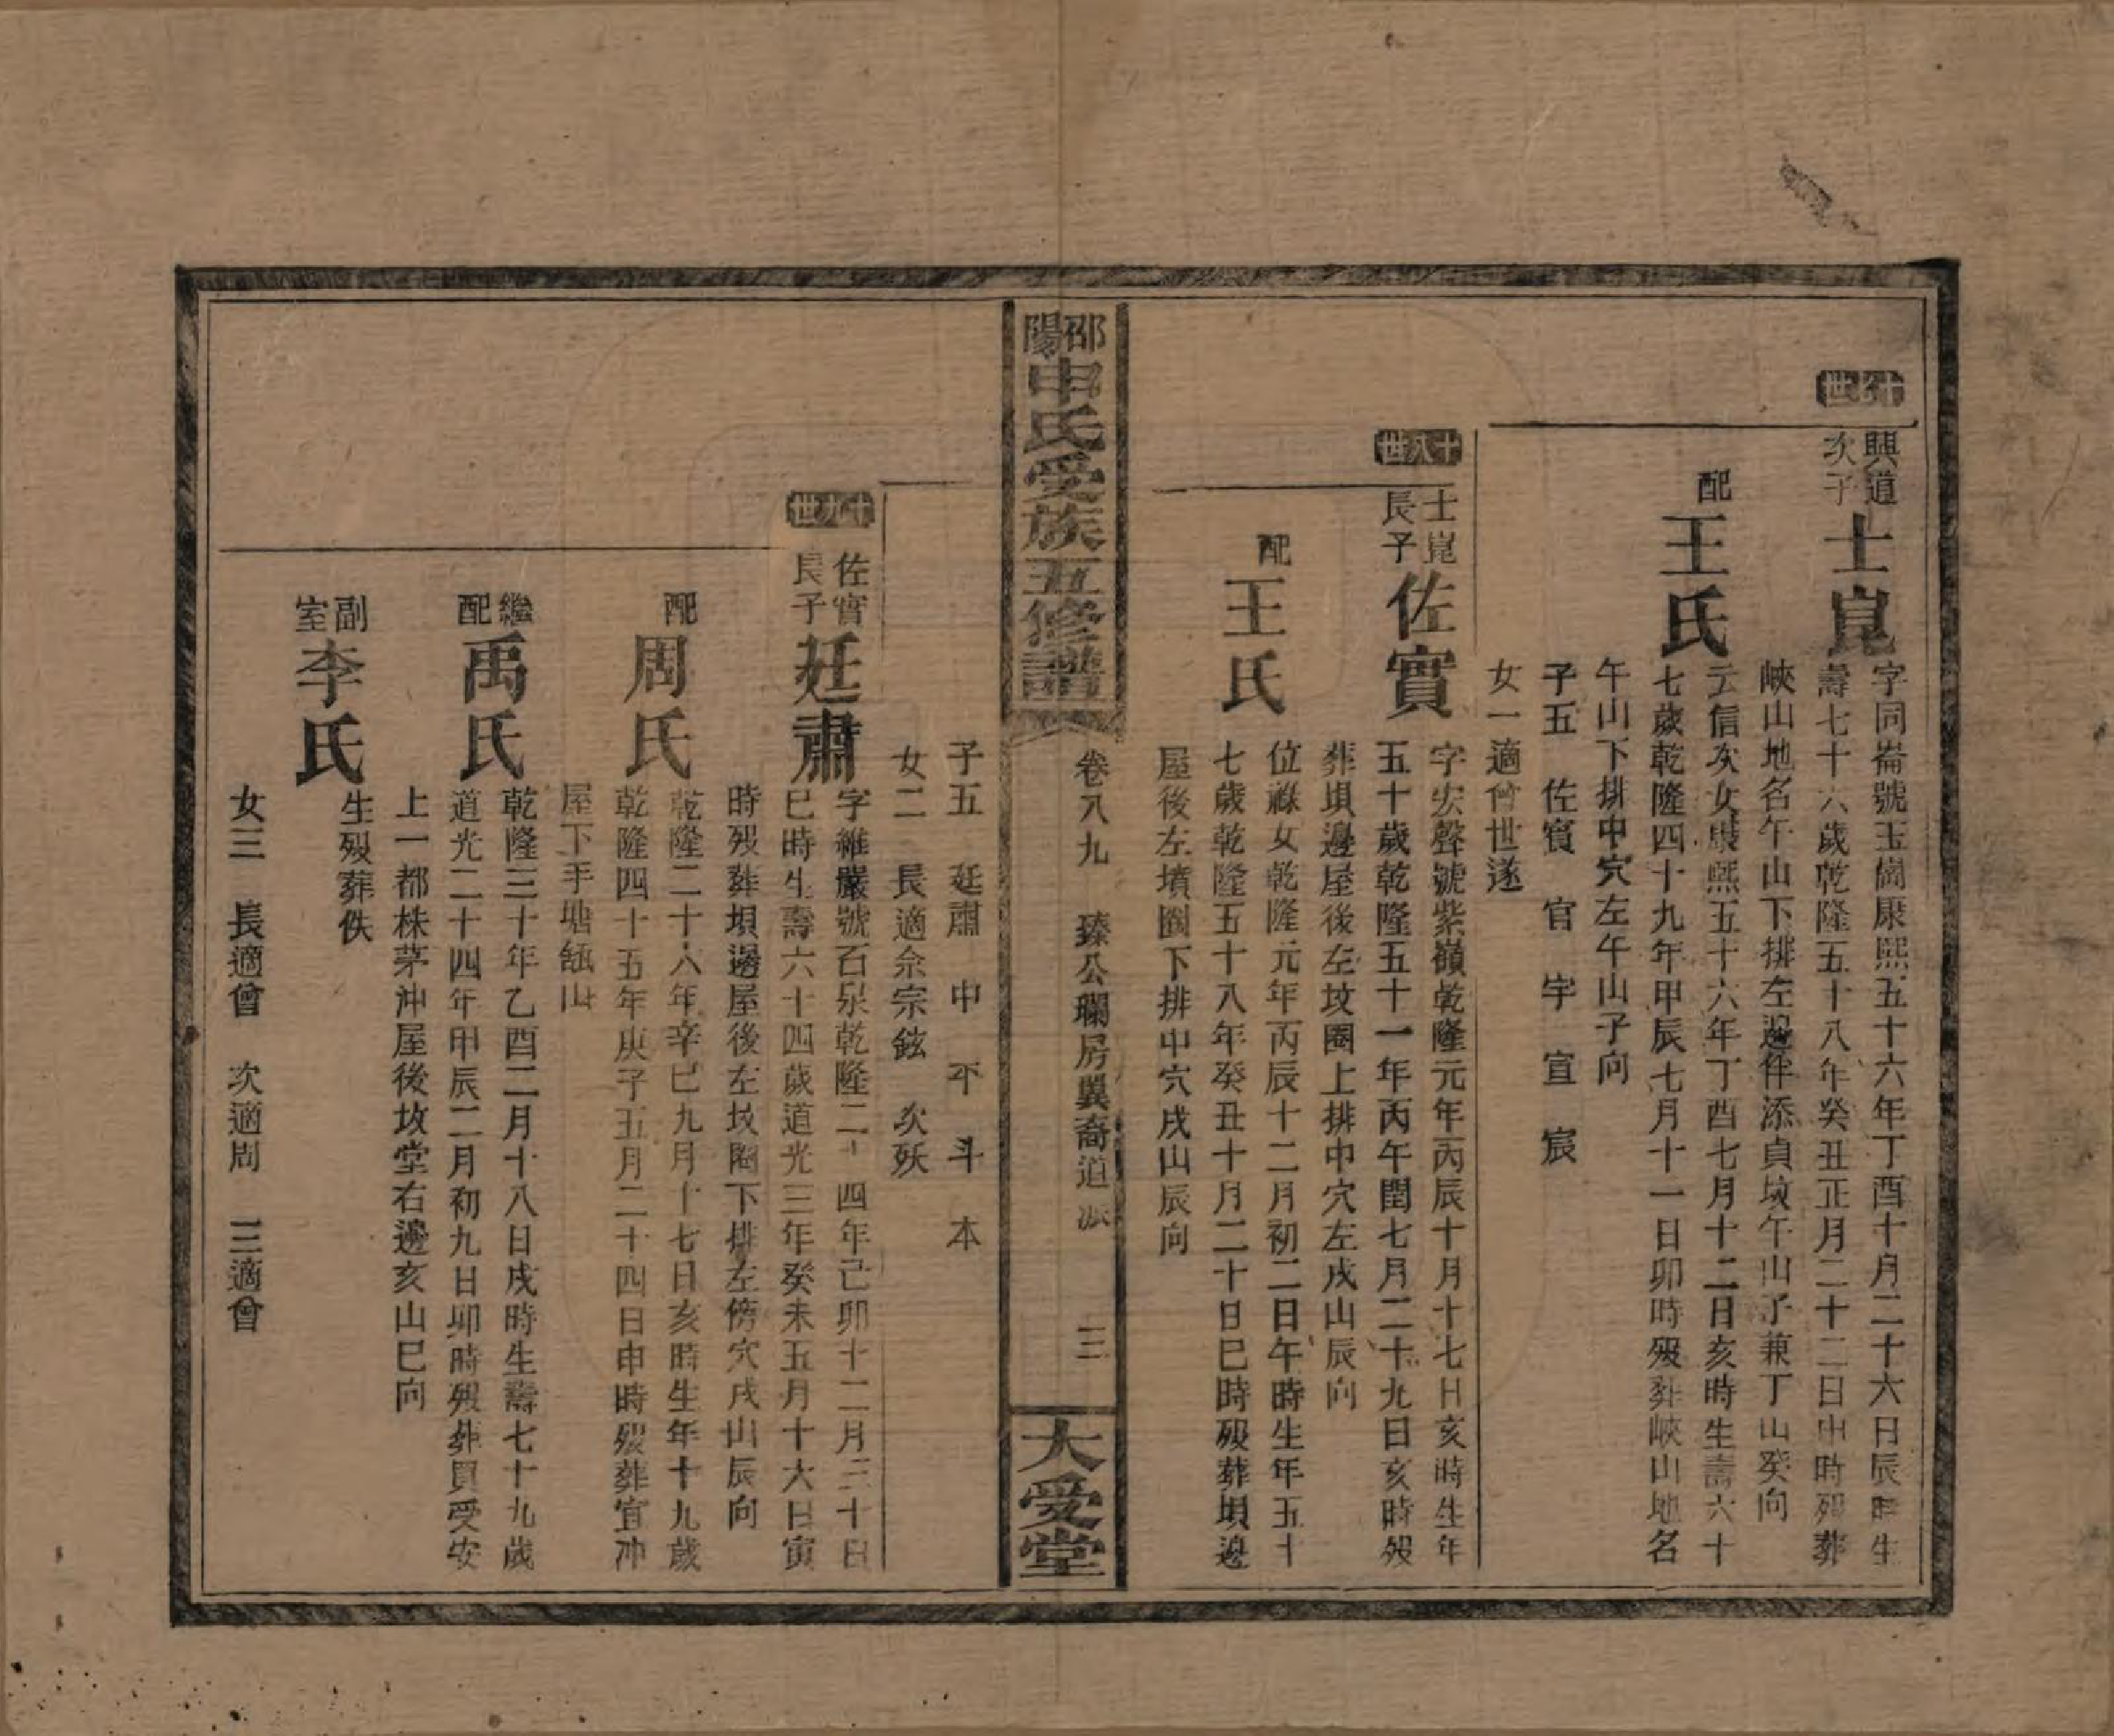 十七世
興道次子
士崑
字同崙號玉崗康熙五十六年丁酉十月二十六日辰時生
壽七十六歲乾隆五十八年癸丑正月二十二日申時歿葬
峽山地名午山下排左邊伴添貞墳午山子兼丁山癸向
配
王氏
云信次女康熙五十六年丁酉七月十二日亥時生壽六十
七歲乾隆四十九年甲辰七月十一日卯時歿葬峽山地名
午山下排中穴左午山子向
子五 佐實 官 宇 宣 宸
女一適曾世遂
十八世
士崑長子
佐實
字宏聲號紫嶺乾隆元年丙辰十月十七日亥時生年
五十歲乾隆五十一年丙午閏七月二十九日亥時歿
葬垻邊屋後左坟圈上排中穴左戌山辰向
配
王氏
位祿女乾隆元年丙辰十二月初二日午時生年五十
七歲乾隆五十八年癸丑十月二十日巳時歿葬垻邊
屋後左墳圈下排中穴戌山辰向
邵陽申氏受族五修譜
卷八九 臻公瓓房異裔道派 三
大受堂
子五 廷肅 中 平 斗 本
女二 長適佘宗鉉 次殀
十九世
佐實長子
廷肅
字維嚴號石泉乾隆二十四年己卯十二月三十日
巳時生壽六十四歲道光三年癸未五月十六日寅
時歿葬垻邊屋後左坟圈下排左傍穴戌山辰向
配
周氏
乾隆二十六年辛巳九月十七日亥時生年十九歲
乾隆四十五年庚子五月二十四日申時歿葬宜冲
屋下手塘 山
繼配
禹氏
乾隆三十年乙酉二月十八日戌時生壽七十九歲
道光二十四年甲辰二月初九日卯時歿葬買受安
上一都株茅冲屋後坟堂右邊亥山巳向
副室
李氏
生歿葬佚
女三 長適曾 次適周 三適曾